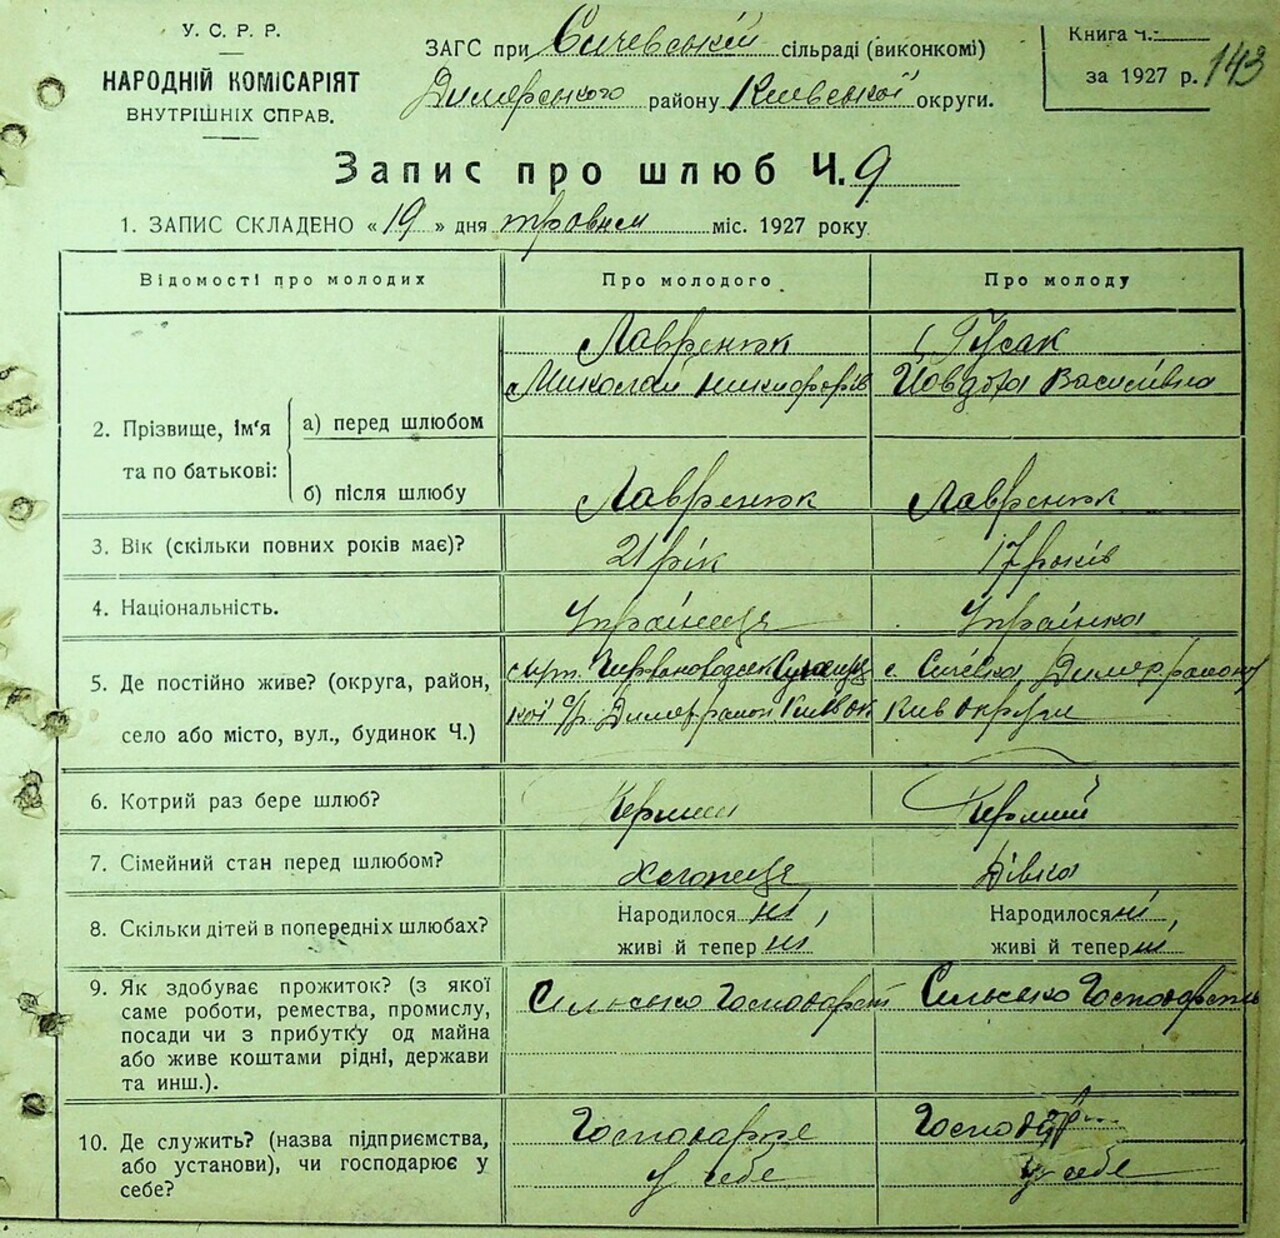 У. С. Р. Р.
НАРОДНІЙ КОМІСАРІЯТ
ВНУТРІШНІХ СПРАВ.
ЗАГС при Сичевській сільраді (виконкомі)
Димерського району Київської округи.
Книга Ч.
за 1927 р. 143
Запис про шлюб Ч. 9
1. ЗАПИС СКЛАДЕНО « 19 » дня травня міс. 1927 року
Відомості про молодих
Про молодого
Про молоду
2. Прізвище, ім'я та по батькові:
а) перед шлюбом
Лавренюк
Миколай Никифорів
Гусак
Йовдоха Василівна
б) після шлюбу
Лавренюк
Лавренюк
3. Вік (скільки повних років має)?
21 рік
17 років
4. Національність.
Українець
Українка
5. Де постійно живе? (округа, район,
село або місто, вул., будинок Ч.)
кої с/р. Димер район Київ ок
с. Сичівка, Димер району
Київ округи
6. Котрий раз бере шлюб?
Перший
Перший
7. Сімейний стан перед шлюбом?
Холопець
Дівка
8. Скільки дітей в попередніх шлюбах?
Народилося ні,
живі й тепер ні
Народилося ні,
живі й тепер ні
9. Як здобуває прожиток? (з якої
саме роботи, ремества, промислу,
посади чи з прибутку од майна
або живе коштами рідні, держави
та инш.).
Сільсько Господарст
Сільсько Господарств
10. Де служить? (назва підприємства,
або установи), чи господарює у
себе?
Господарює
у себе
у себе